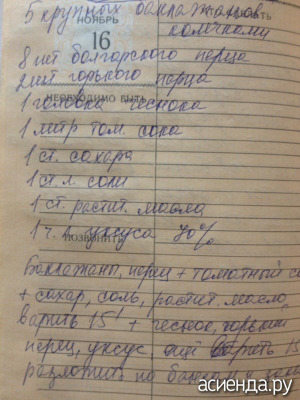 5 крупных баклажанов
НОЯБРЬ
16
колечками
8 шт болгарского перца
2 шт горького перца
НЕОБХОДИМО БЫТЬ
1 головка чеснока
1 литр том. сока
1 ст. сахара
1 ст. л. соли
1 ст. растит. масла
1 ч. л. уксуса 70%
ПОЗВОНИТЬ
Баклажаны, перец + томатный с
+ сахар, соль, растит. масло,
варить 15' + чеснок, горький
перец, уксус, ещё варить 15
разложить по банкам и
асиенда.ру